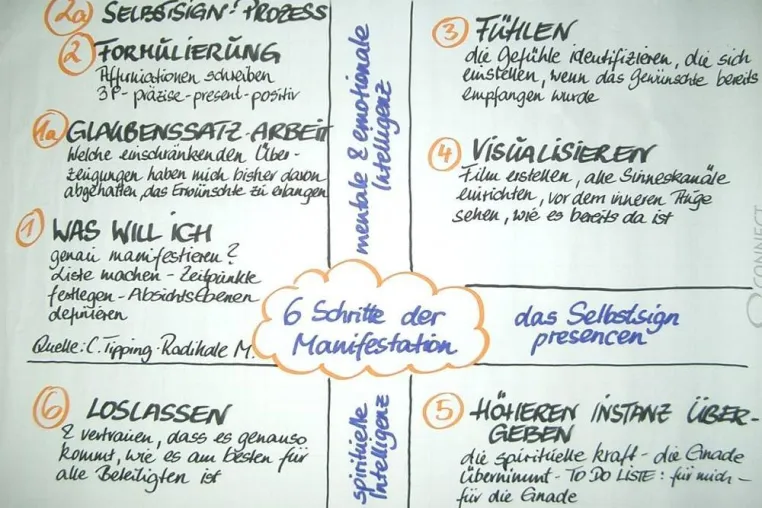 2a SELBSTSIGN-PROZESS
2 FORMULIERUNG
Affirmationen schreiben
3P - präzise-present-positiv
1a GLAUBENSSATZ-ARBEIT
Welche einschränkenden Über-
zeugungen haben mich bisher davon
abgehalten, das Erwünschte zu erlangen
1 WAS WILL ICH
genau manifestieren?
Liste machen - Zeitpunkte
festlegen - Absichtsebenen
definieren
Quelle: C. Tipping - Radikale M.
mentale & emotionale
Intelligenz
3 FÜHLEN
die Gefühle identifizieren, die sich
einstellen, wenn das Gewünschte bereits
empfangen wurde
4 VISUALISIEREN
Film erstellen, alle Sinneskanäle
einrichten, vor dem inneren Auge
sehen, wie es bereits da ist
6 Schritte der
Manifestation
das Selbstsign
presencen
6 LOSLASSEN
& vertrauen, dass es genauso
kommt, wie es am besten für
alle Beteiligten ist
spirituelle
Intelligenz
5 HÖHEREN INSTANZ ÜBER-
GEBEN
die spirituelle Kraft - die Gnade
übernimmt - TO DO LISTE: für mich -
für die Gnade
CONNECT